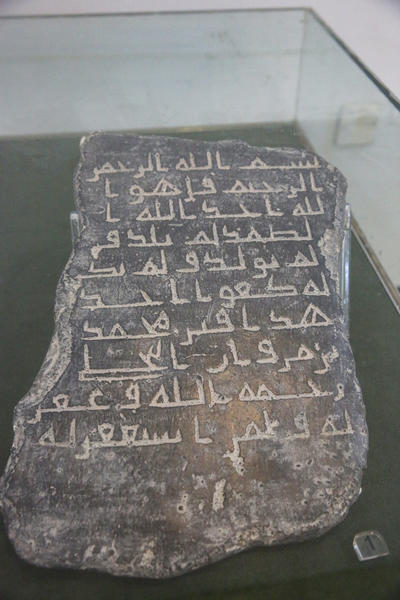 بسم الله الرحمن
الرحيم قل هو ا
لله احد الله ا
لصمد لم يلد و
لم يولد و لم يك
له كفوا احد
هذا قبر محمد
بن مروان
رحمه الله و غفر
له و لمن استغفر له
1